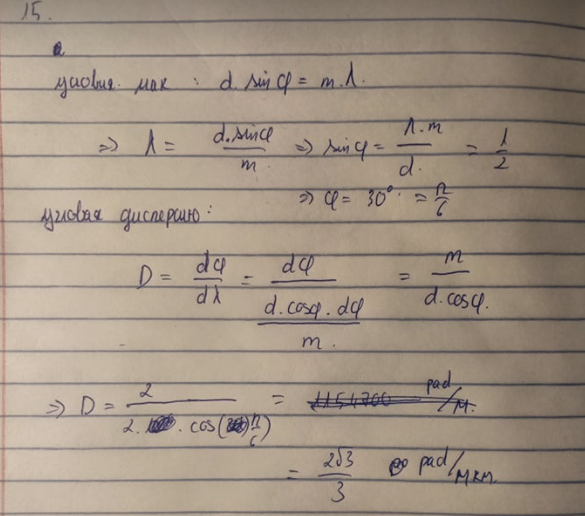 15.
условия мак : d. sinφ = m.λ.
=> λ = d.sinφ / m => sinφ = λ.m / d. = 1/2
=> φ = 30° = π/6
угловая дисперсию:
D = dφ/dλ = dφ / (d.cosφ.dφ / m.) = m / d.cosφ.
=> D = 2 / 2. . cos( π/6) = 1154700 рад/м.
= 2√3/3 рад/мкм.